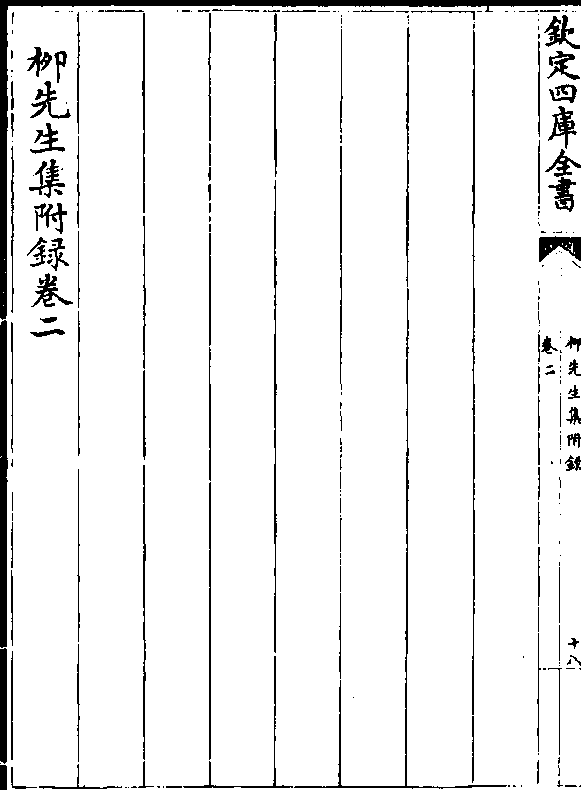 欽定四庫全書
柳先生集附錄
卷二
十八
柳先生集附録卷二